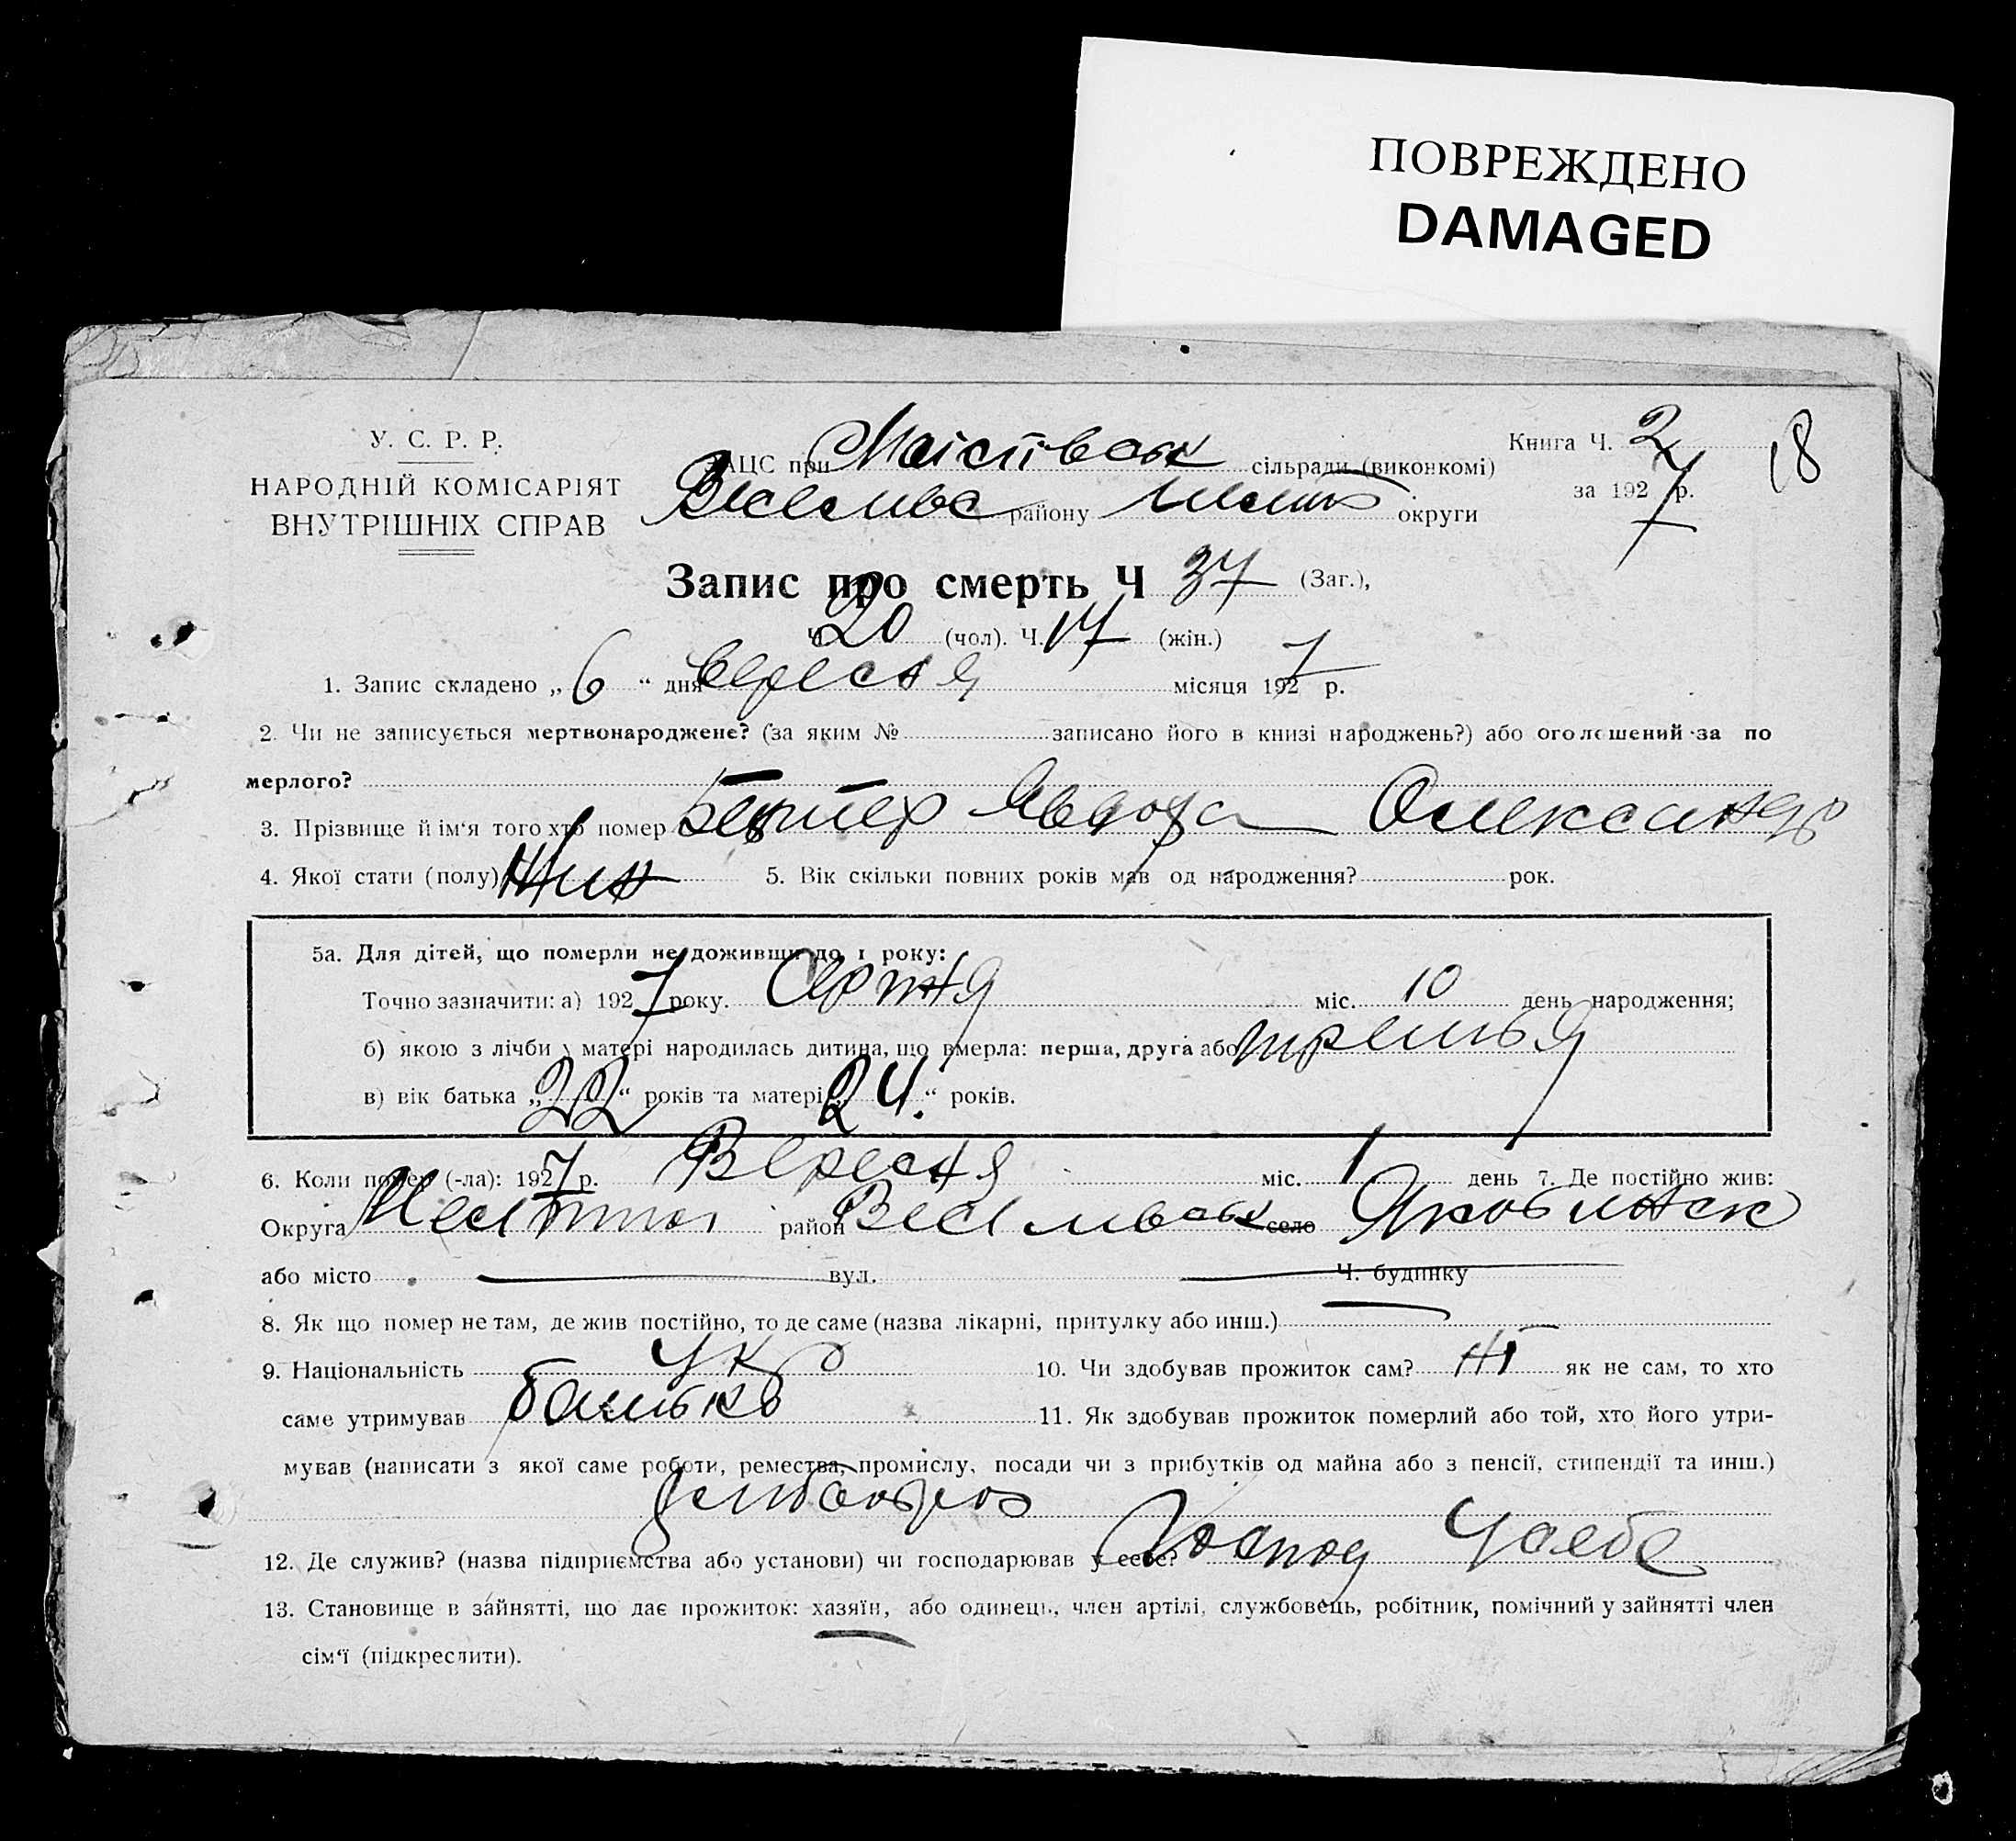 ПОВРЕЖДЕНО
DAMAGED
У. С. Р. Р.
НАРОДНІЙ КОМІСАРІЯТ
ВНУТРІШНІХ СПРАВ
ЗАЦС при сільради (виконкомі)
району округи
Книга Ч. 2
за 1927 р.
18
Запис про смерть Ч 37 (Заг.),
Ч. 20 (чол). Ч. 17 (жін.)
1. Запис складено „ 6 “ дня вересня місяця 1927 р.
2. Чи не записується мертвонароджене? (за яким № записано його в книзі народжень?) або оголошений за по
мерлого?
3. Прізвище й ім'я того хто помер Явдоха Олександр
4. Якої стати (полу) Жин 5. Вік скільки повних років мав од народження? рок.
5а. Для дітей, що померли не доживши до 1 року:
Точно зазначити: а) 1927 року. Серпня міс. 10 день народження;
б) якою з лічби у матері народилась дитина, що вмерла: перша, друга або третья
в) вік батька „ 22 “ років та матері „ 24. “ років.
6. Коли помер (-ла): 1927 р. Вересня міс. 1 день 7. Де постійно жив:
Округа район село
або місто вул. Ч. будинку
8. Як що помер не там, де жив постійно, то де саме (назва лікарні, притулку або инш.)
9. Національність Укр 10. Чи здобував прожиток сам? Ні як не сам, то хто
саме утримував батько 11. Як здобував прожиток померлий або той, хто його утри-
мував (написати з якої саме роботи, ремества, промислу, посади чи з прибутків од майна або з пенсії, стипендії та инш.)
хлібороб
12. Де служив? (назва підприємства або установи) чи господарював у себе? Господ Усебе
13. Становище в зайнятті, що дає прожиток: хазяїн, або одинець, член артілі, службовець, робітник, помічний у зайнятті член
сім'ї (підкреслити).